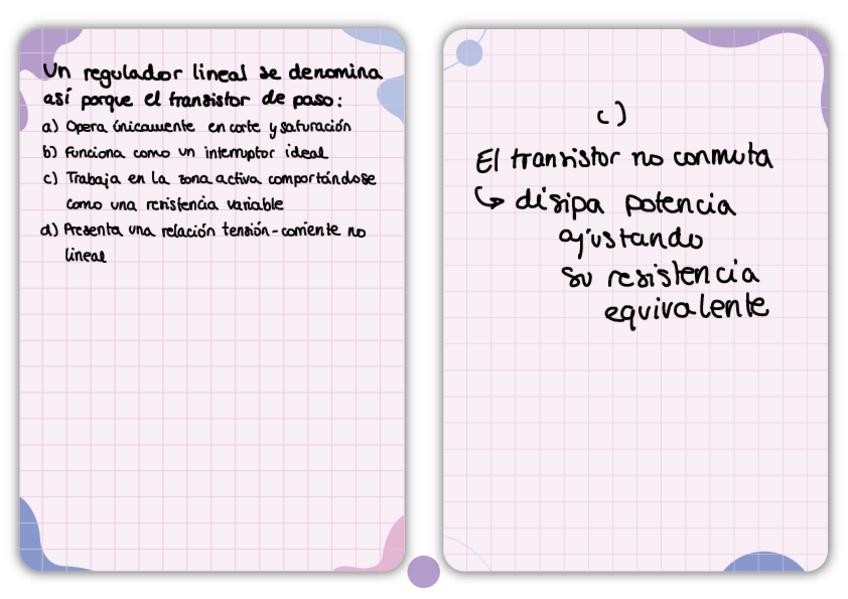 Un regulador lineal se denomina
así porque el transistor de paso:
a) Opera únicamente en corte y saturación
b) Funciona como un interruptor ideal
c) Trabaja en la zona activa comportándose
como una resistencia variable
d) Presenta una relación tensión-corriente no
lineal
c)
El transistor no conmuta
↳ disipa potencia
ajustando
su resistencia
equivalente